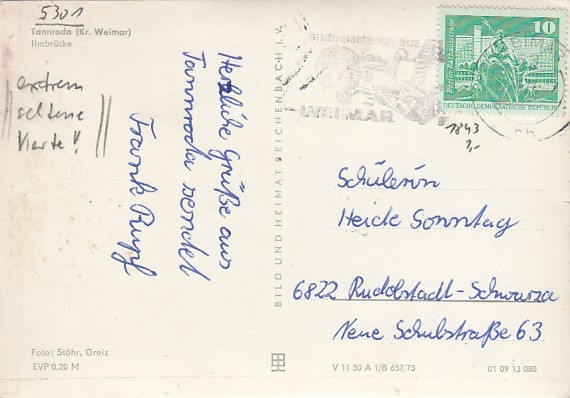 5301
Tannroda (Kr. Weimar)
Ilmbrücke
extrem
seltene
Karte!
Herzliche Grüße aus
Tannroda sendet
Frank Rupf
Foto: Stöhr, Greiz
EVP 0,20 M
BILD UND HEIMAT REICHENBACH i. V.
WEIMAR
10
Berlin, Rathausstraße
DEUTSCHE DEMOKRATISCHE REPUBLIK
1843
3,-
Schülerin
Heide Sonntag
6822 Rudolstadt-Schwarza
Neue Schulstraße 63
V 11 50 A 1/B 657/75
01 09 13 080